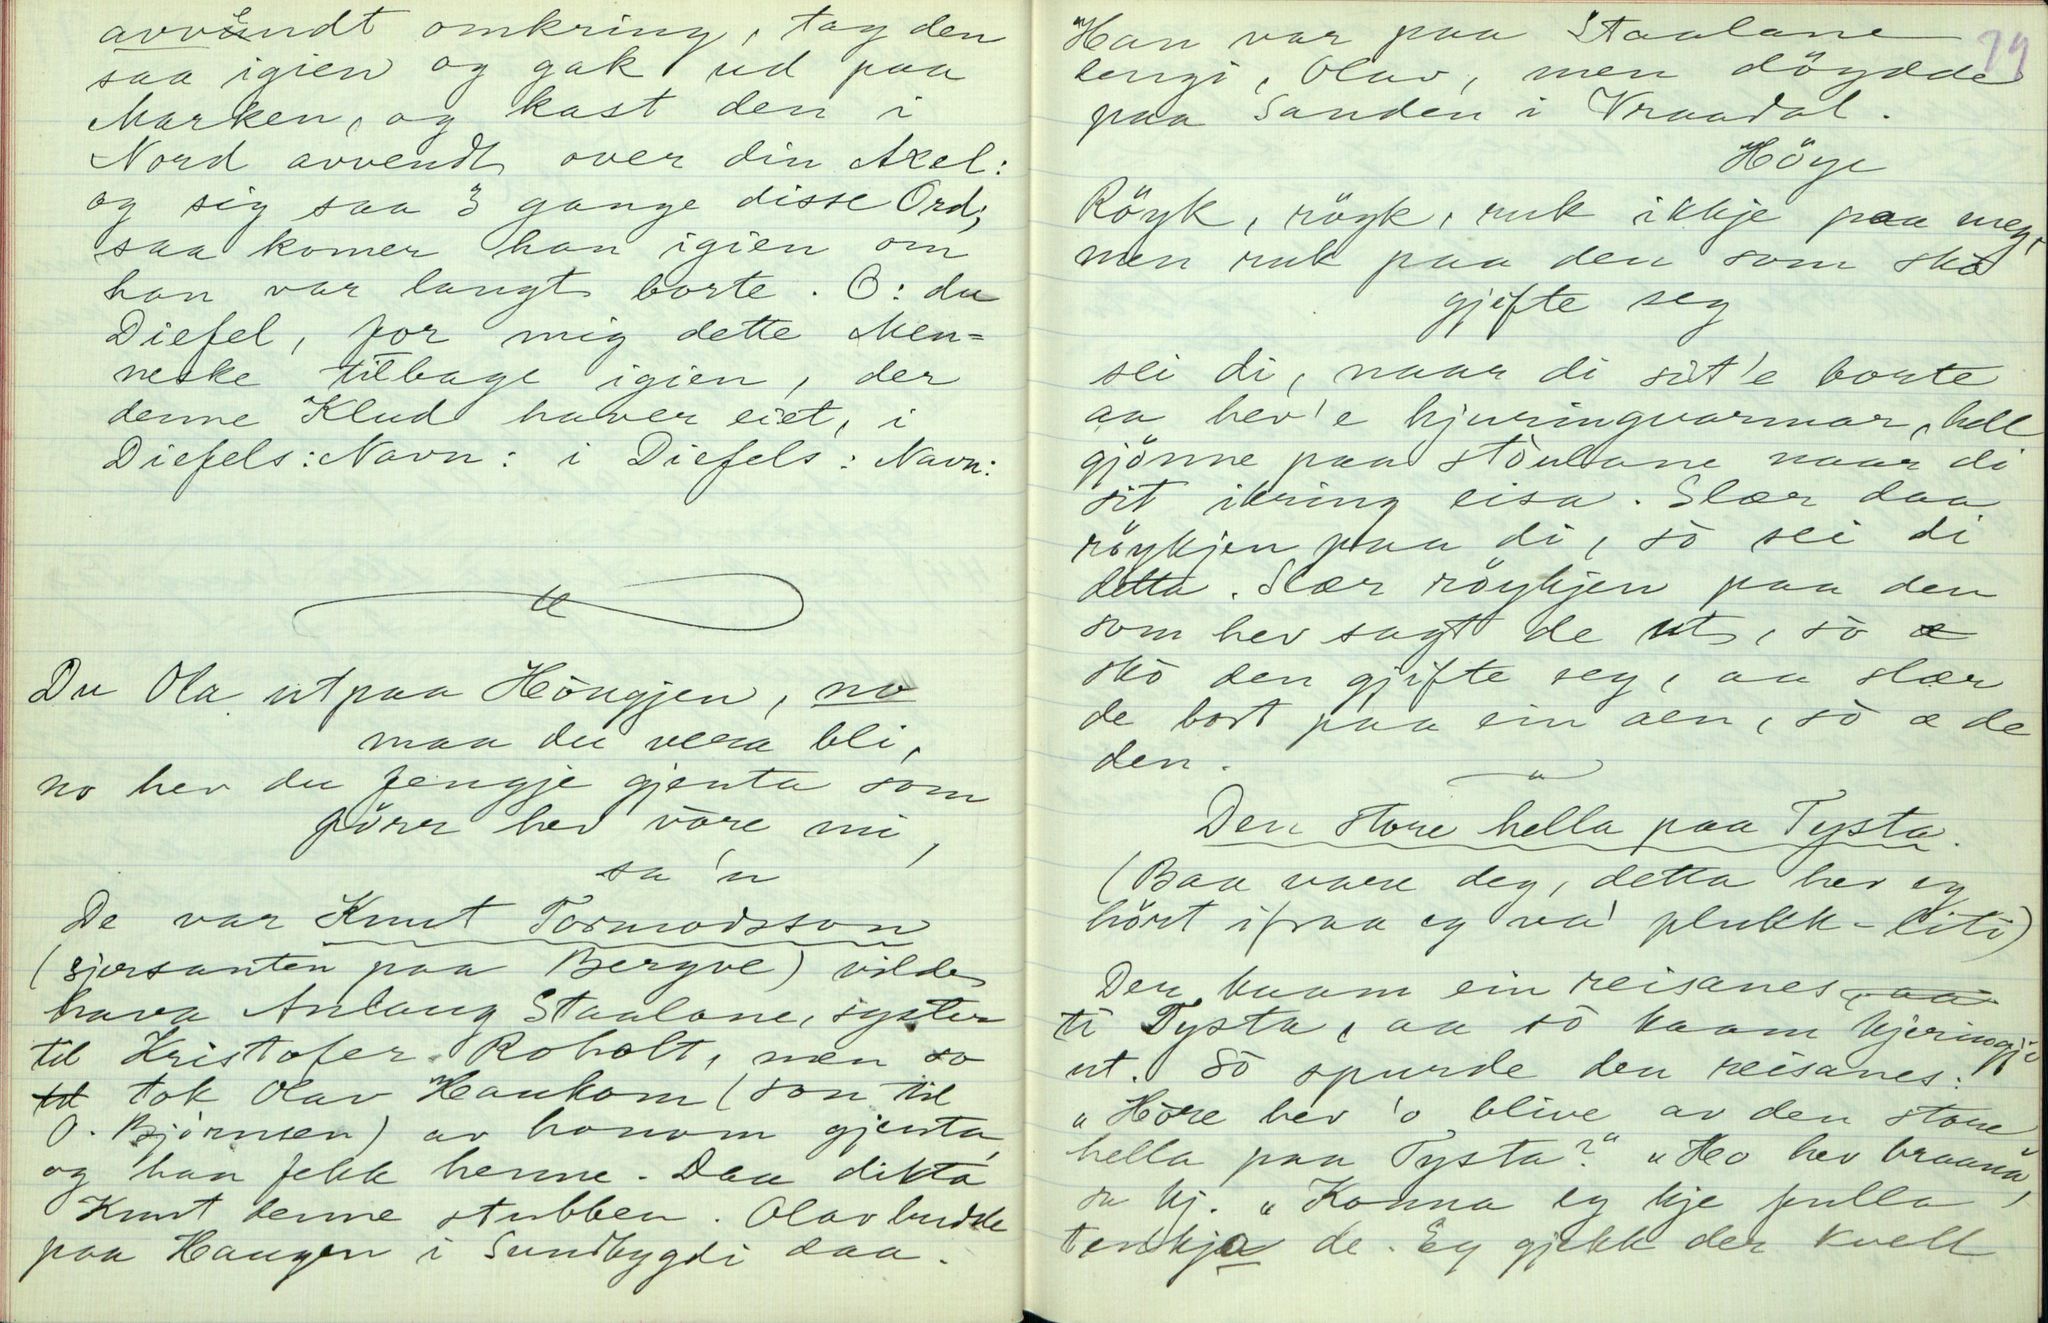 avvendt omkring, tag den
saa igien og gak ud paa
Marken, og kast den i
Nord avvendt over din Axel:
og sig saa 3 gange disse Ord;
saa komer han igien om
han var langt borte. O: du
Diefel, for mig dette Men=
neske tilbage igien, der
denne Klud haver eiet, i
Diefels: Navn: i Diefels: Navn:
Du Ola utpaa Höugjen, no
maa du vera bli,
no hev du fengje gjenta som
förr hev vore mi,
sa 'n
De var Knut Tormodsson
(sjersanten paa Bergve) vilde
hava Anlaug Staalane, syster
til Kristofer Roholt, men so
tok Olav Haukom (son til
O. Bjørnsen) av honom gjenta,
og han fekk henne. Daa dikta
Knut denne stubben. Olav budde
paa Haugen i Sundbygdi daa.
79
Han var paa Staalane
lengi, Olav, men döydde
paa Sanden i Vraadal.
Höge
Röyk, röyk, ruk ikkje paa meg,
men ruk paa den som sko
gjifte seg
sei di, naar di sit'e borte
aa hev'e hjuringvarmar, hell
gjönne paa stöulane naar di
sit ikring eisa. Slær daa
röykjen paa di, so sei di
detta. Slær röykjen paa den
som hev sagt de ut, so
sko den gjifte seg, aa slær
de bort paa ein aen, so æ de
den.
Den store hella paa Tysta.
(Baa vare deg, detta hev eg
hört ifraa eg va' plukk-liti)
Der kaam ein reisanes
ti Tysta, aa so kaam kjeringji
ut. So spurde den reisanes:
"Hore hev 'o blive av den store
hella paa Tysta?" "Ho hev braana,"
sa kj. "Konna eg kje fulla
tenkja de. Eg gjekk der kvell